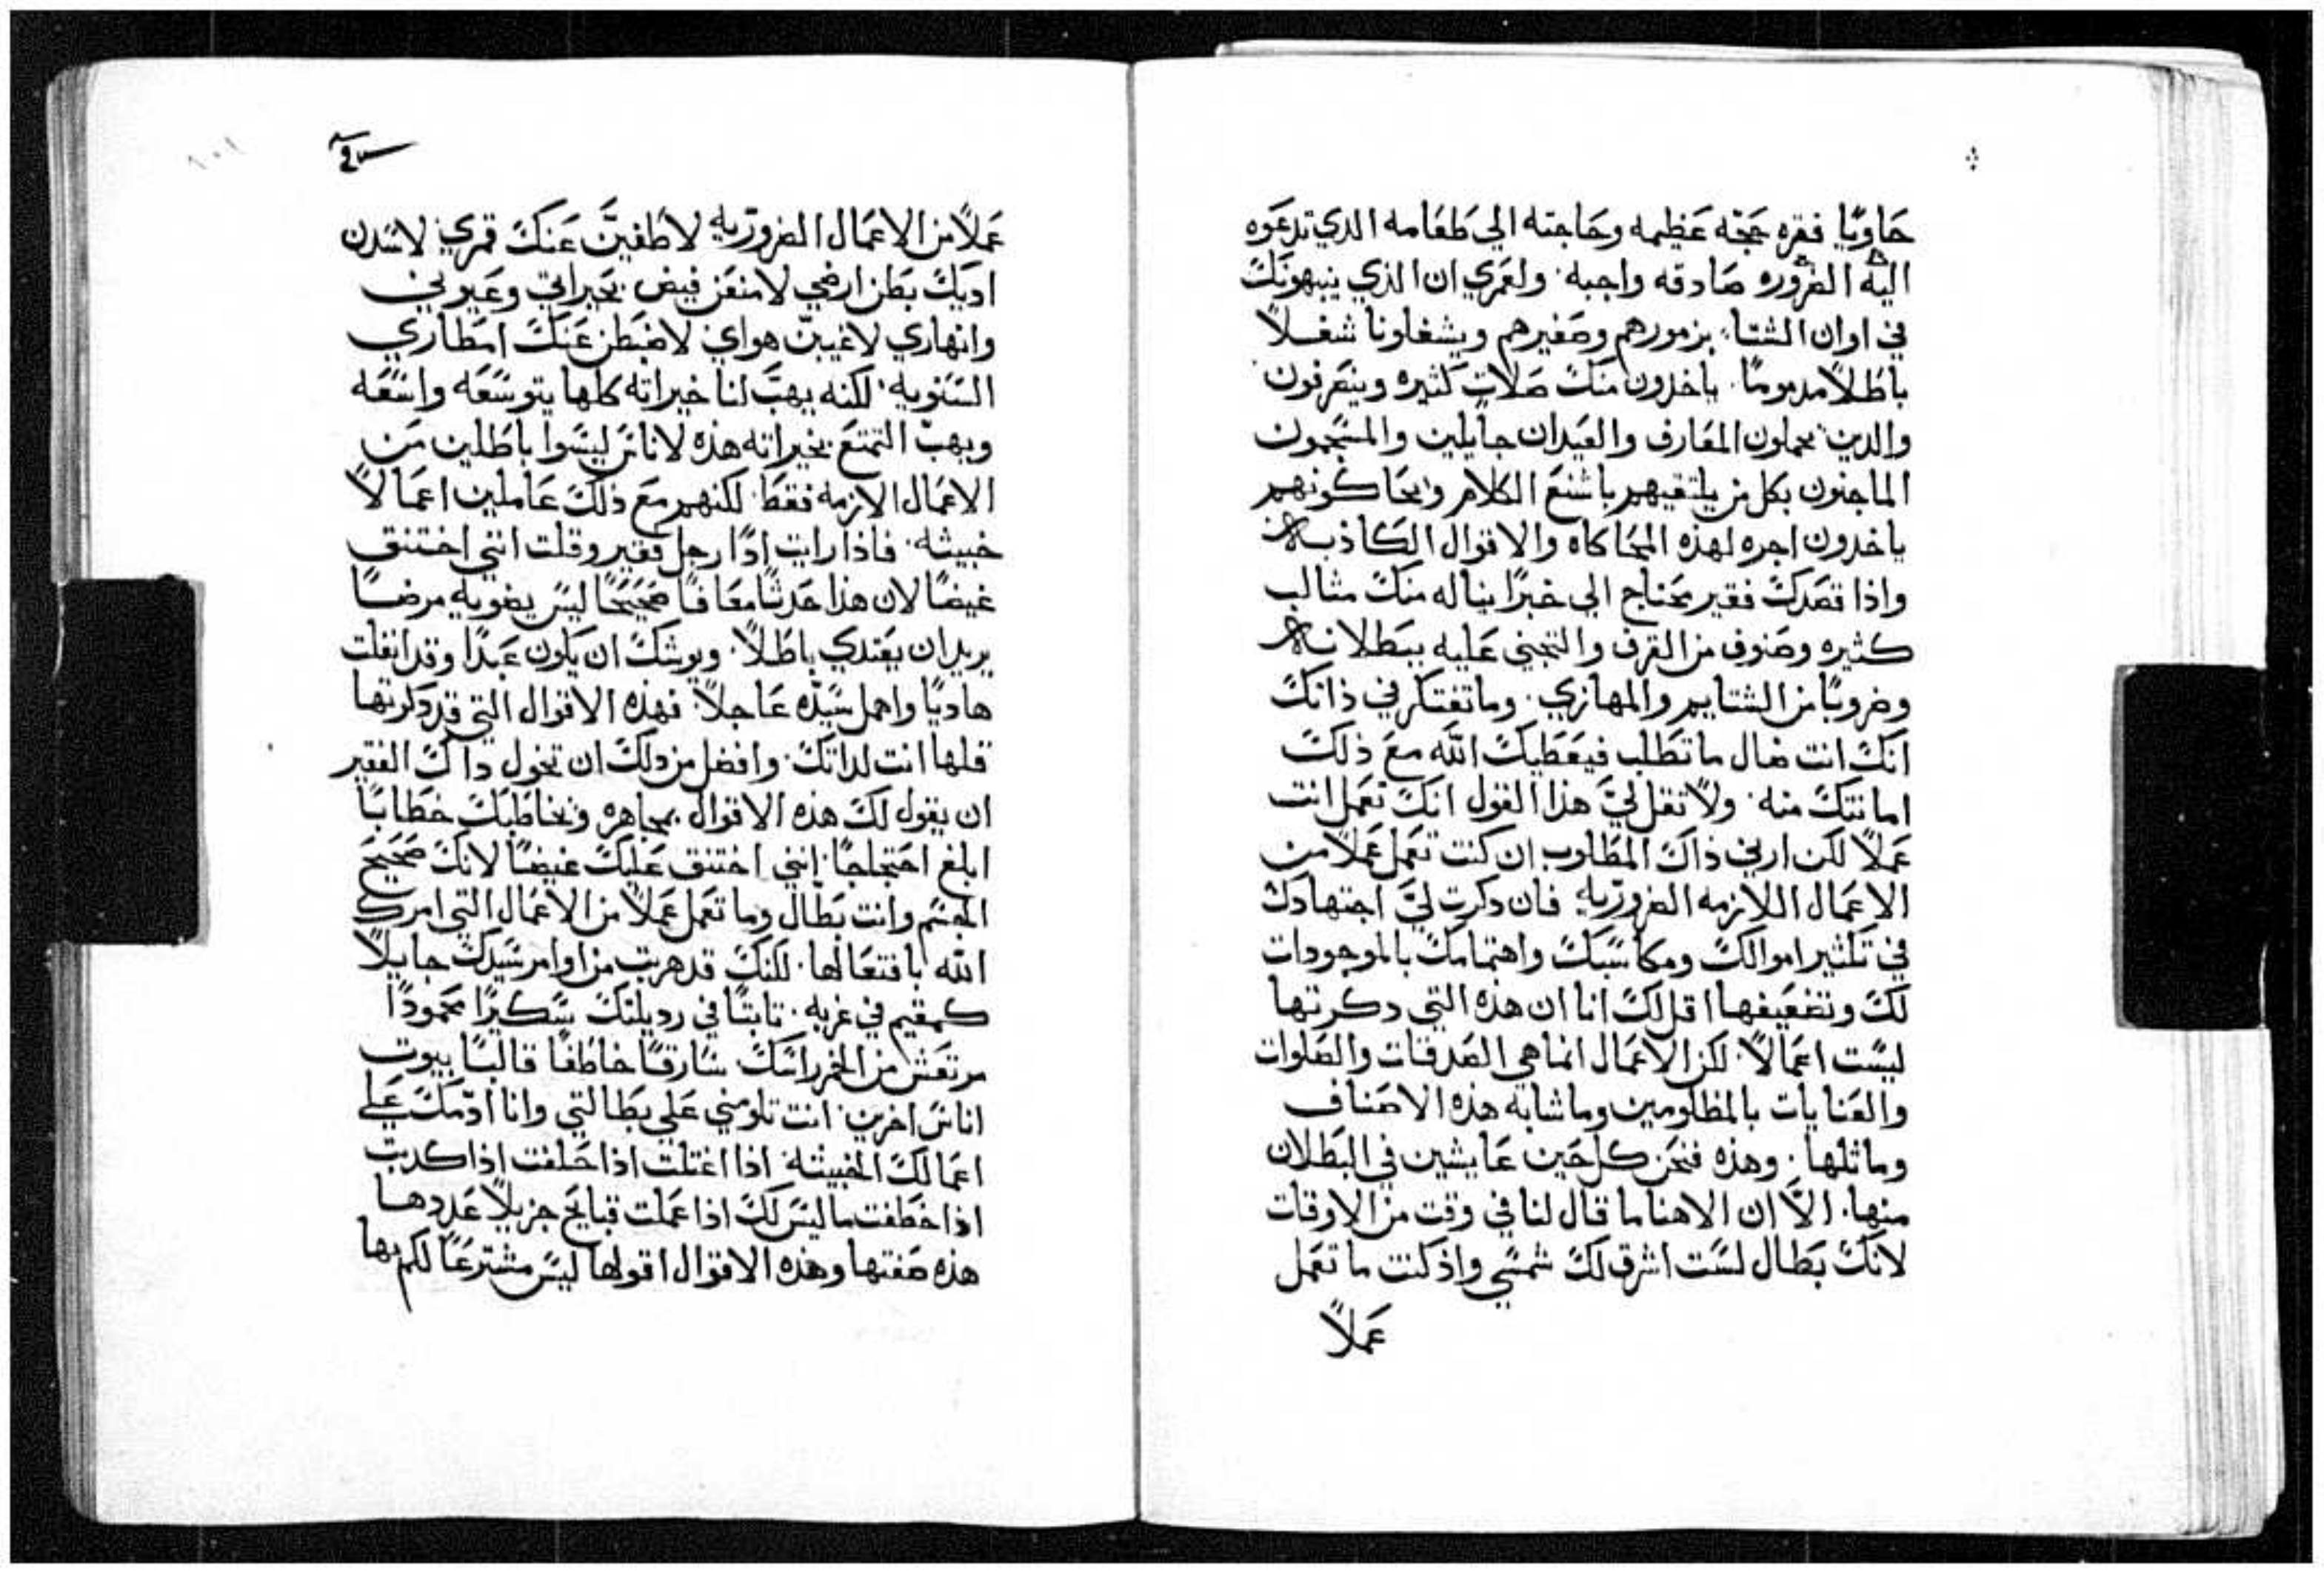 حاويًا فقره حجة عظيمه وحاجته الي طعامه الدي تدعوه
اليه الضروره صادقه واجبه. ولعمري ان الذي ينبهونك
في اوان الشتا بزمورهم وصفيرهم ويشغلونا شغلاً
باطلاً مدمومًا. ياخدون منك صلات كثيره وينصرفون
والدين يحملون المعازف والعيدان جايلين والمسبحون
الماجنون بكل من يلتقيهم باشنع الكلام ويحاكونهم
ياخدون اجره لهذه المحاكاه والاقوال الكاذبه
واذا قصدك فقير يحتاج الي خبزًا يناله منك مثالب
كثيره وصنوف من القرف والتجني عليه ببطلانه
وضروبًا من الشتايم والمهازي. وما تفتكر في ذاتك
انك انت ضال ما تطلب فيعطيك الله مع ذلك
اماننك منه. ولا تقل ليَّ هذا القول انك تعمل انت
عملاً لكن ارني ذاك المطلوب ان كنت تعمل عملاً من
الاعمال اللازمه الضروريه فان دكرت ليَّ اجتهادك
في تكثير اموالك ومكاسبك واهتمامك بالموجودات
لك وتضعيفها اقل لك انا ان هذه التي دكرتها
ليست اعمالاً. لكن الاعمال انما هي الصدقات والصلوات
والعنايات بالمظلومين وما شابه هذه الاصناف
وماثلها. وهذه فنحن كل حين عايشين في البطلان
منها. الاَّ ان الاهنا ما قال لنا في وقت من الاوقات
لانك بطال لست اشرق لك شمسي واذ كنت ما تعمل
عملاً
عملاً من الاعمال الضروريه لاطفينَّ عنك قمري لاسدن
اديك بطن ارضي لامنعن فيض بحيراتي وعيوني
وانهاري لاغيبنّ هواي لاضبطن عنك امطاري
السنويه. لكنه يهب لنا خيراته كلها بتوسعه واسعه
ويهب التمتع بخيراته هذه لاناس ليسوا باطلين من
الاعمال الازمه فقط. لكنهم مع ذلك عاملين اعمالاً
خبيثه. فاذا رايت ادًا رجل فقير وقلت انني اختنق
غيضًا لان هذا حدثًا معافًا صحيحًا ليس يضويه مرضًا
يريد ان يغتدي باطلاً. ويوشك ان يكون عبدًا وقد انفلت
هاديًا واهمل سيده عاجلاً. فهذه الاقوال التي قد دكرتها
قلها انت لداتك. وافضل من دلك ان تخول داك الفقير
ان يقول لك هذه الاقوال بمجاهره ويخاطبك خطابًا
ابلغ احتجلجًا. انني اختنق عليك غيضًا لانك صحيح
الجسم وانت بطال وما تعمل عملاً من الاعمال التي امرك
الله بافتعالها. لكنك قد هربت من اوامر سيدك جايلاً
كمقيم في غربه. تابتًا في رديلتك سكيرًا مخمودًا
مرتعش من الخمر راسك سارقًا خاطفًا قالبًا بيوت
اناس اخرين. انت تلومني علي بطالتي وانا ادّمك علي
اعمالك الخبيثه اذا اغتلت اذا حلفت اذا كدبت
اذا خطفت ما ليس لك اذا عملت قبايح جزيلاً عددها
هذه صفتها وهذه الاقوال اقولها ليس مشترعًا لكم بها